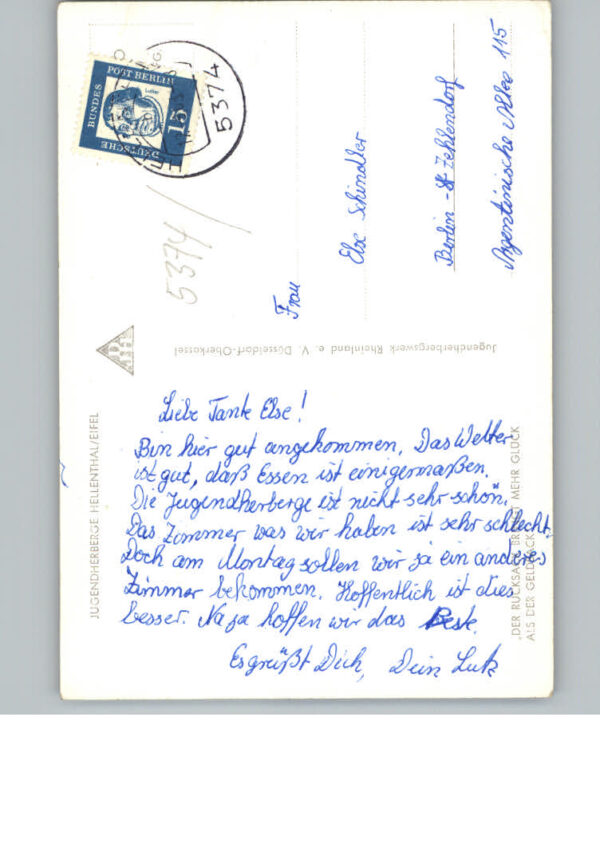 Liebe Tante Else!
Bin hier gut angekommen. Das Wetter
ist gut, daß Essen ist einigermaßen.
Die Jugendherberge ist nicht sehr schön.
Das Zimmer was wir haben ist sehr schlecht.
Doch am Montag sollen wir ja ein anderes
Zimmer bekommen. Hoffentlich ist dies
besser. Na ja hoffen wir das Beste.
Es grüßt Dich, Dein Lutz
Frau
Else Schindler
Berlin - Zehlendorf
Argentinische Allee 115
5374/
DEUTSCHE
BUNDES
POST BERLIN
Luther
15
5374
Jugendherbergswerk Rheinland e. V. Düsseldorf-Oberkassel
JUGENDHERBERGE HELLENTHAL/EIFEL
„DER RUCKSACK BRINGT MEHR GLÜCK
ALS DER GELDSACK